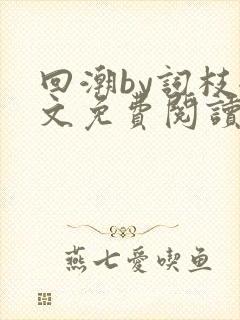 回潮by詞枝
文免費閱讀
燕七愛喫鱼